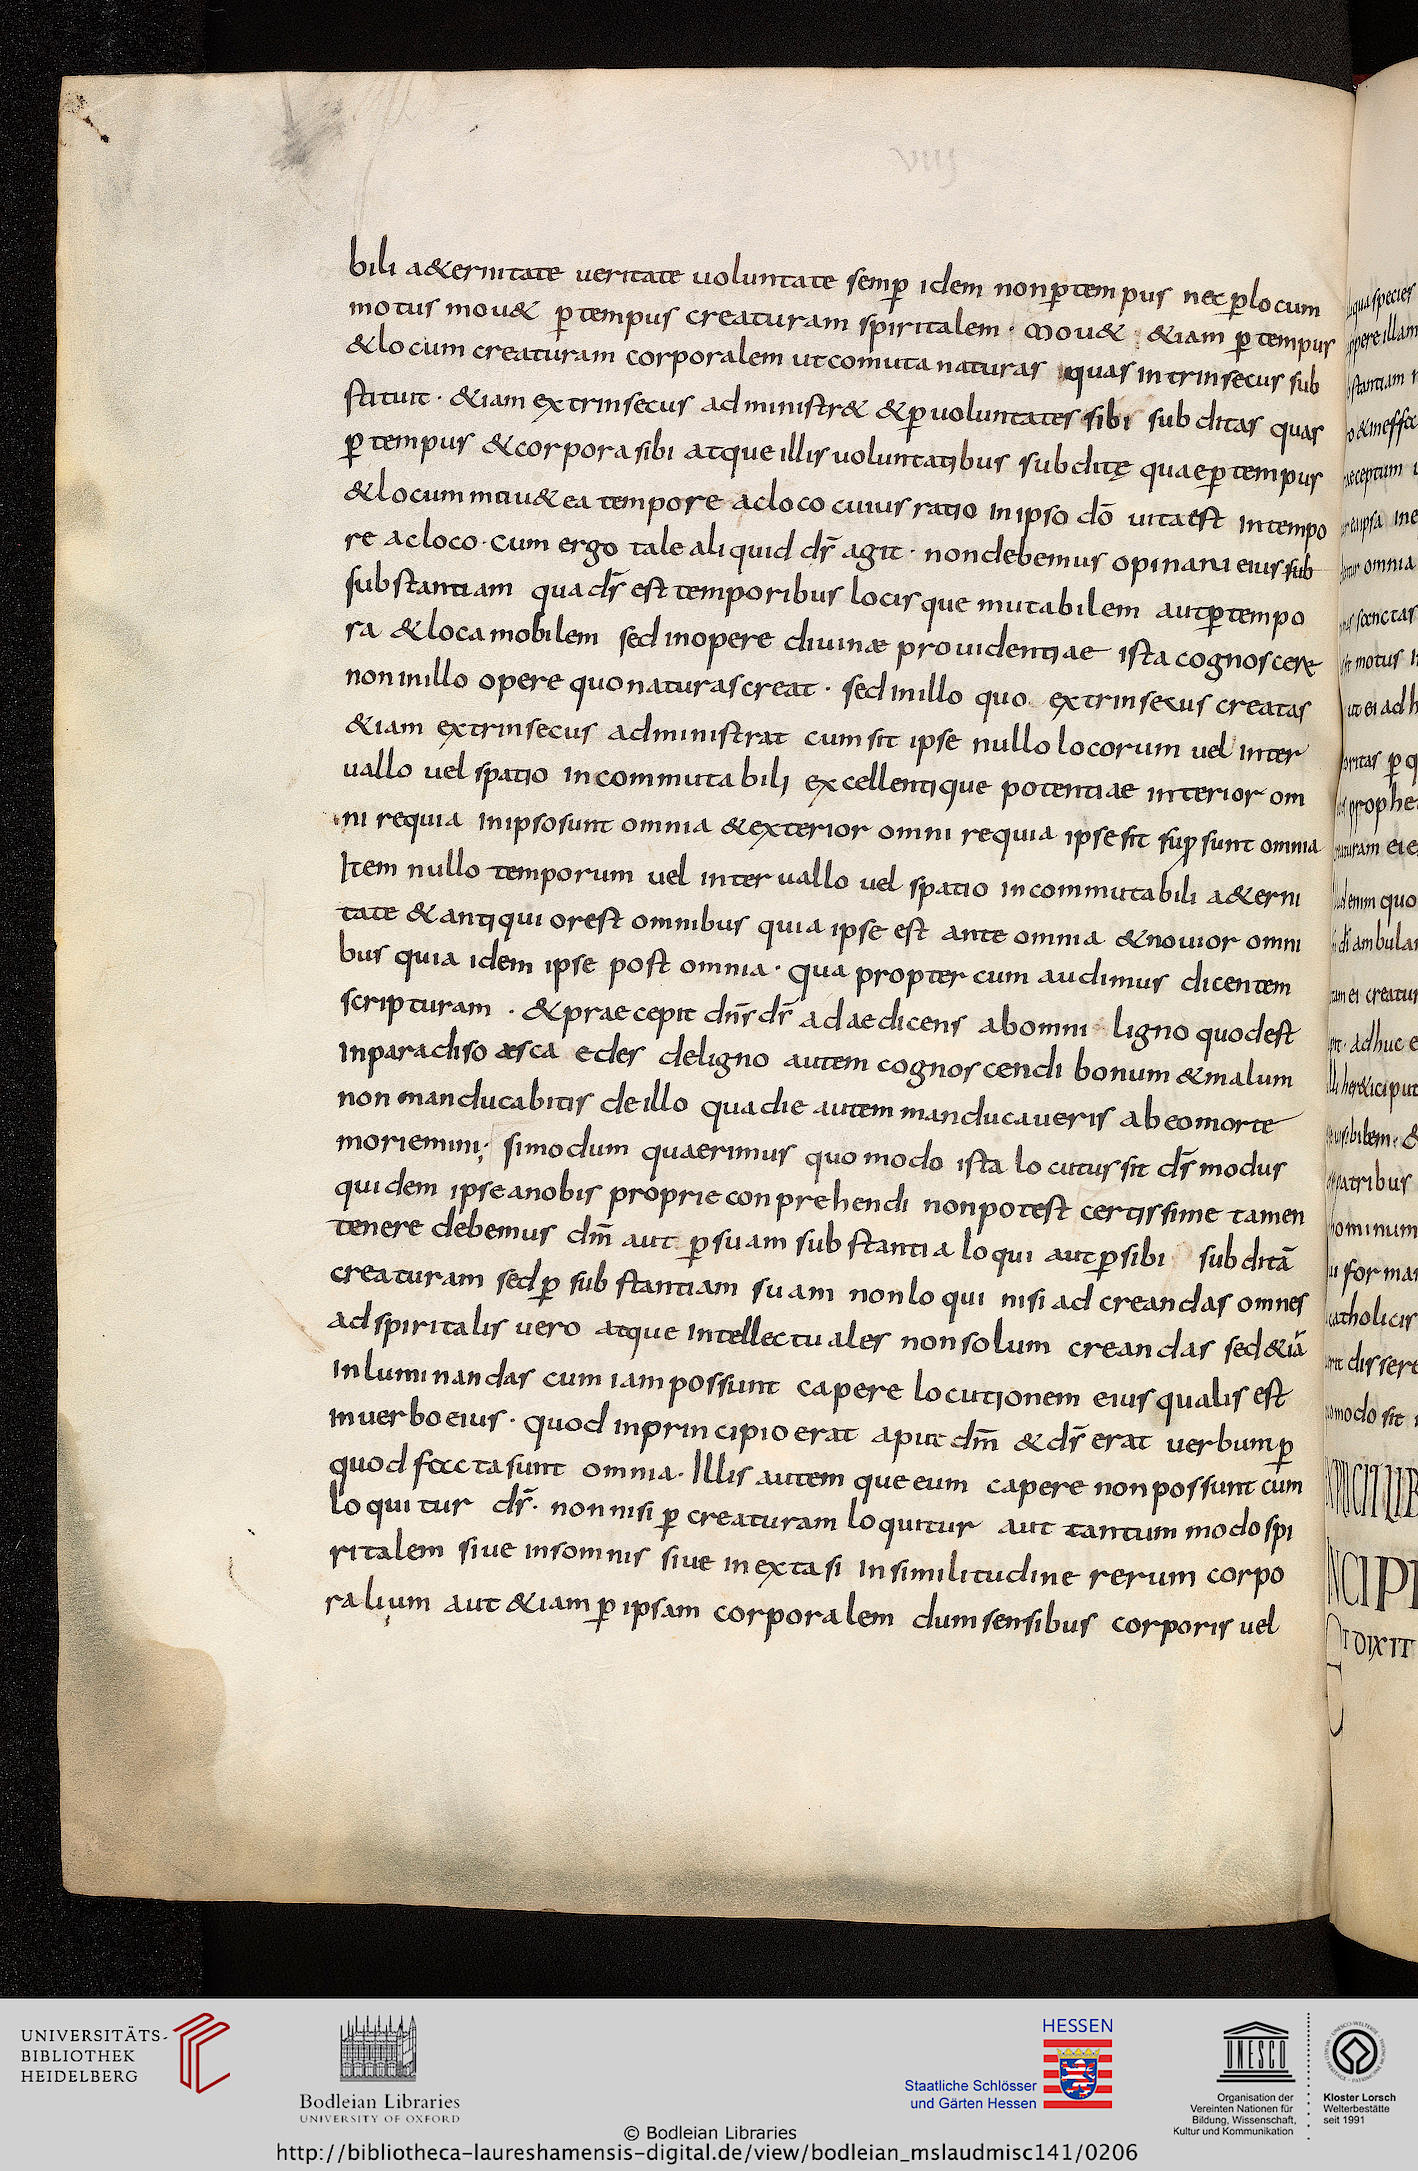 VIIJ
bili a&ernitate ueritate uoluntate semꝑ idem nonꝑtempus nec ꝑlocum
motus mou& ꝑtempus creaturam spiritalem · Mou& &iam ꝑtempus
&locum creaturam corporalem utcomuta naturas quas intrinsecus sub
stituit · &iam extrinsecus administr& &ꝑuoluntates sibi subditas quas
ꝑtempus &corpora sibi atque illis uoluntatibus subditę quaeꝑtempus
&locum mtiu& ea tempore acloco cuius ratio inipso dō uitaest intempo
re acloco · cum ergo tale aliquid dr̄ agit · nondebemus opinarieius sub
substantiam qua dr̄ est temporibus locisque mutabilem autꝑtempo
ra &loca mobilem sed inopere diuinæ prouidentiae ista cognoscere
noninillo opere quonaturascreat · sed inillo quo extrinsecus creatas
&iam extrinsecus administrat cumsit ipse nullo locorum uel inter
uallo uel spatio incommutabili excellentique potentiae interior om
ni requia inipsosunt omnia &exterior omni requia ipsesit suꝑ sunt omnia
Item nullo temporum uel interuallo uel spatio incommutabili a&erni
tate &antiquiorest omnibus quia ipse est ante omnia &nouior omni
bus quia idem ipse post omnia · quapropter cum audimus dicentem
scripturam · &praecepit dn̄s ds̄ adae dicens abomni ligno quodest
inparadiso æsca edes deligno autem cognoscendi bonum &malum
non manducabitis deillo quadie autem manducaueris abeo morte
moriemini; simodum quaerimus quomodo ista locutus sit ds̄ modus
quidem ipse anobis proprie conprehendi nonpotest certissime tamen
tenere debemus dm̄ aut ꝑsuam substantia loqui autꝑsibi subditā
creaturam sedꝑ substantiam suam nonloqui nisi ad creandas omnes
adspiritalis uero atque intellectuales nonsolum creandas sed&iā
inluminandas cum iampossunt capere locutionem eius qualis est
inuerboeius · quod inprincipioerat aput dm̄ &ds̄ erat uerbumꝑ
quod factasunt omnia · Illis autem que eum capere nonpossunt cum
loquitur ds̄ · nonnisi ꝑ creaturam loquitur aut tantummodo spi
ritalem siue insomnis siue inextasi insimilitudine rerum corpo
ralium aut &iamꝑipsam corporalem dumsensibus corporis uel
species
illam
omnia
motus
catholicis
DIXIT
UNIVERSITÄTS-
BIBLIOTHEK
HEIDELBERG
Bodleian Libraries
UNIVERSITY OF OXFORD
© Bodleian Libraries
HESSEN
Staatliche Schlösser
und Gärten Hessen
UNESCO
Organisation der
Vereinten Nationen für
Bildung, Wissenschaft,
Kultur und Kommunikation
Kloster Lorsch
Welterbestätte
seit 1991
http://bibliotheca-laureshamensis-digital.de/view/bodleian_mslaudmisc141/0206